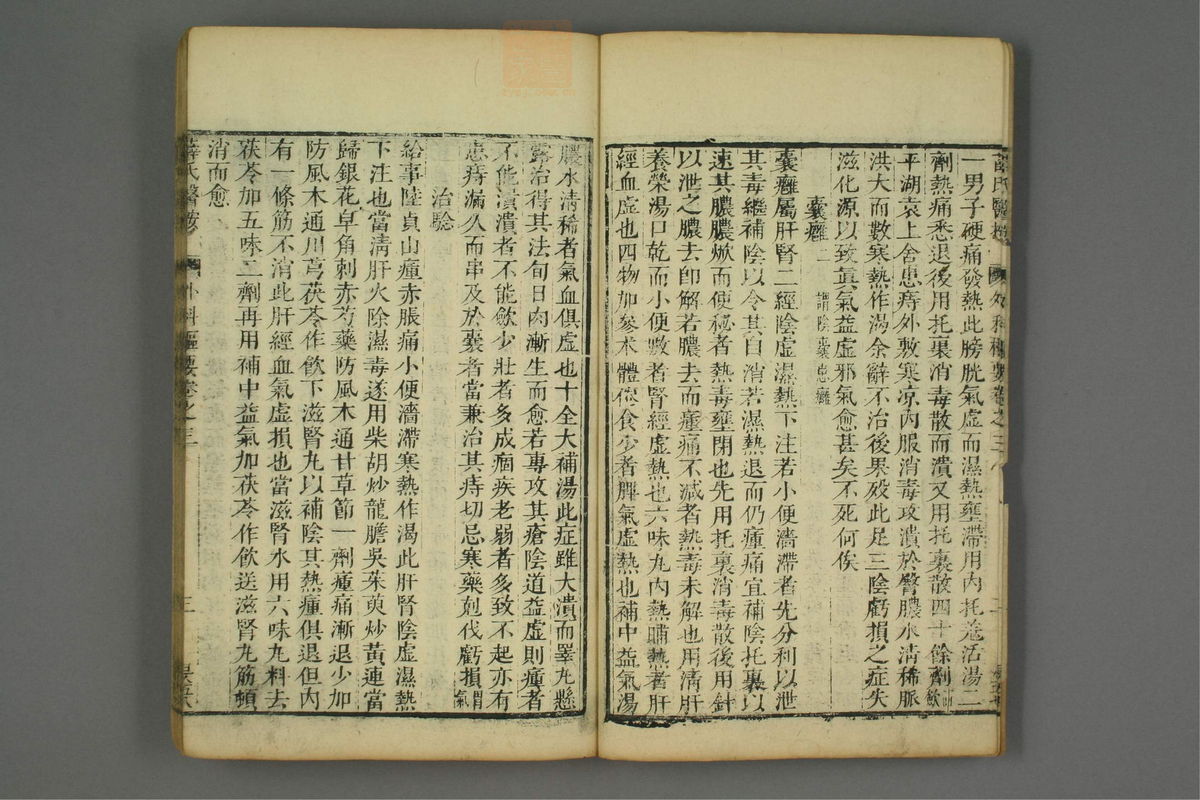 一男子硬痛發熱此膀胱氣虛而濕熱壅滯用內托羗活湯二
劑熱痛悉退後用托裏消毒散而潰又用托裏散四十餘劑飲
平湖袁上舍患痔外敷寒凉內服消毒攻潰於臀膿水清稀脈
洪大而數寒熱作渴余辭不治後果歿此足三陰虧損之症失
滋化源以致眞氣益虛邪氣愈甚矣不死何俟
囊癰二 謂陰囊患癰
囊癰屬肝腎二經陰虛濕熱下注若小便濇滯者先分利以泄
其毒繼補陰以令其自消若濕熱退而仍瘇痛宜補陰托裏以
速其膿膿焮而便秘者熱毒壅閉也先用托裏消毒散後用針
以泄之膿去卽解若膿去而瘇痛不減者熱毒未解也用清肝
養榮湯口乾而小便數者腎經虛熱也六味丸內熱晡熱者肝
經血虛也四物加參术體倦食少者脾氣虛熱也補中益氣湯
膿水清稀者氣血俱虛也十全大補湯此症雖大潰而睪丸懸
露治得其法旬日肉漸生而愈若專攻其瘡陰道益虛則瘇者
不能潰潰者不能歛少壯者多成痼疾老弱者多致不起亦有
患痔漏久而串及於囊者當兼治其痔切忌寒藥剋伐虧損胃氣
治驗
給事陸貞山瘇赤脹痛小便濇滯寒熱作渴此肝腎陰虛濕熱
下注也當清肝火除濕毒遂用柴胡炒龍膽吳茱萸炒黃連當
歸銀花皁角刺赤芍藥防風木通甘草節一劑瘇痛漸退少加
防風木通川芎茯苓作飲下滋腎丸以補陰其熱瘇俱退但內
有一條筋不消此肝經血氣虛損也當滋腎水用六味丸料去
茯苓加五味二劑再用補中益氣加茯苓作飲送滋腎丸筋頓
消而愈
薛氏醫按 外科樞要卷之三 三